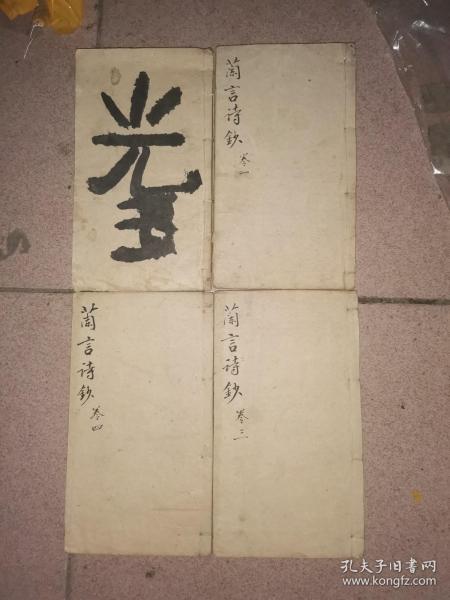 光
蘭言詩鈔 卷一
蘭言詩鈔 卷四
蘭言詩鈔 卷三
孔夫子旧书网
www.kongfz.com